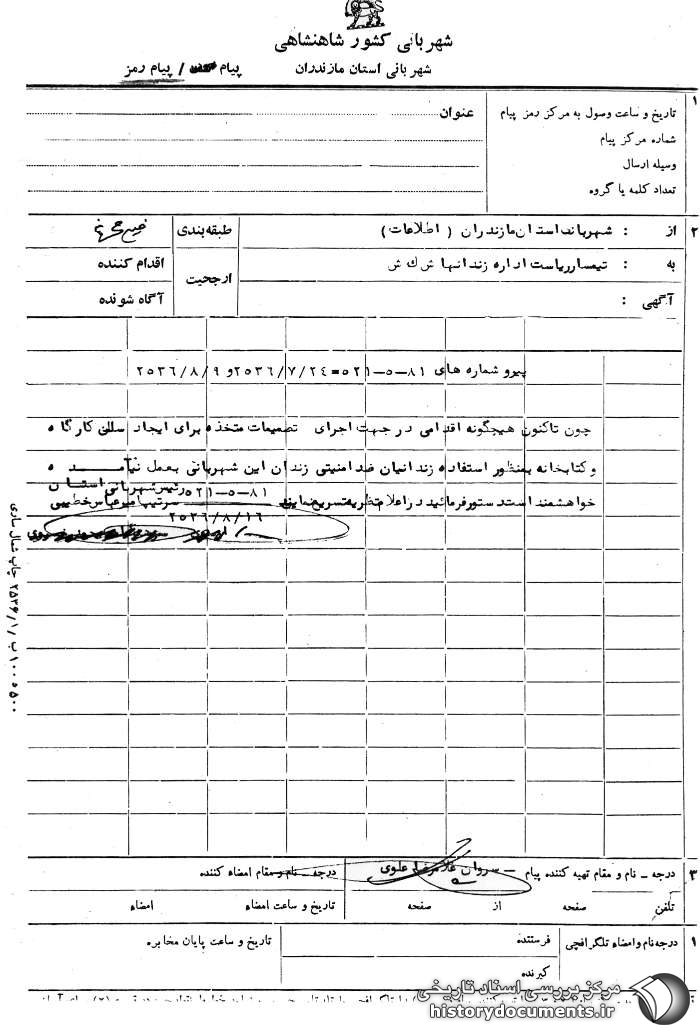 شهربانی کشور شاهنشاهی
شهربانی استان مازندران
پیام / پیام رمز
۱
تاریخ و ساعت وصول به مرکز رمز پیام
عنوان
شماره مرکز پیام
وسیله ارسال
تعداد کلمه یا گروه
۲
از : شهربانی استان مازندران ( اطلاعات )
طبقه‌بندی
به : تیمسار ریاست اداره زندانها ش ک ش
ارجحیت
اقدام کننده
آگهی :
آگاه شونده
پیرو شماره های ۸۱-۵-۵۲۱ = ۲۵۳۶/۷/۲٤ و ۲۵۳۶/۸/۹
چون تاکنون هیچگونه اقدامی در جهت اجرای تصمیمات متخذه برای ایجاد سالن کارگاه
و کتابخانه بمنظور استفاده زندانیان ضد امنیتی زندان این شهربانی بعمل نیامده
خواهشمند است دستور فرمائید در اعلام نظریه تسریع نمایند
۸۱-۵-۵۲۱ رئیس شهربانی استان
سرتیپ خطیبی
۲۵۳۶/۸/۱۶
۳
درجه - نام و مقام تهیه کننده پیام - سروان غلامرضا علوی
درجه - نام و مقام امضاء کننده
تلفن صفحه از صفحه
تاریخ و ساعت امضاء امضاء
۱
درجه نام و امضاء تلگرافچی
فرستنده
گیرنده
تاریخ و ساعت پایان مخابره
چاپ شمال ساری
مرکز بررسی اسناد تاریخی
historydocuments.ir